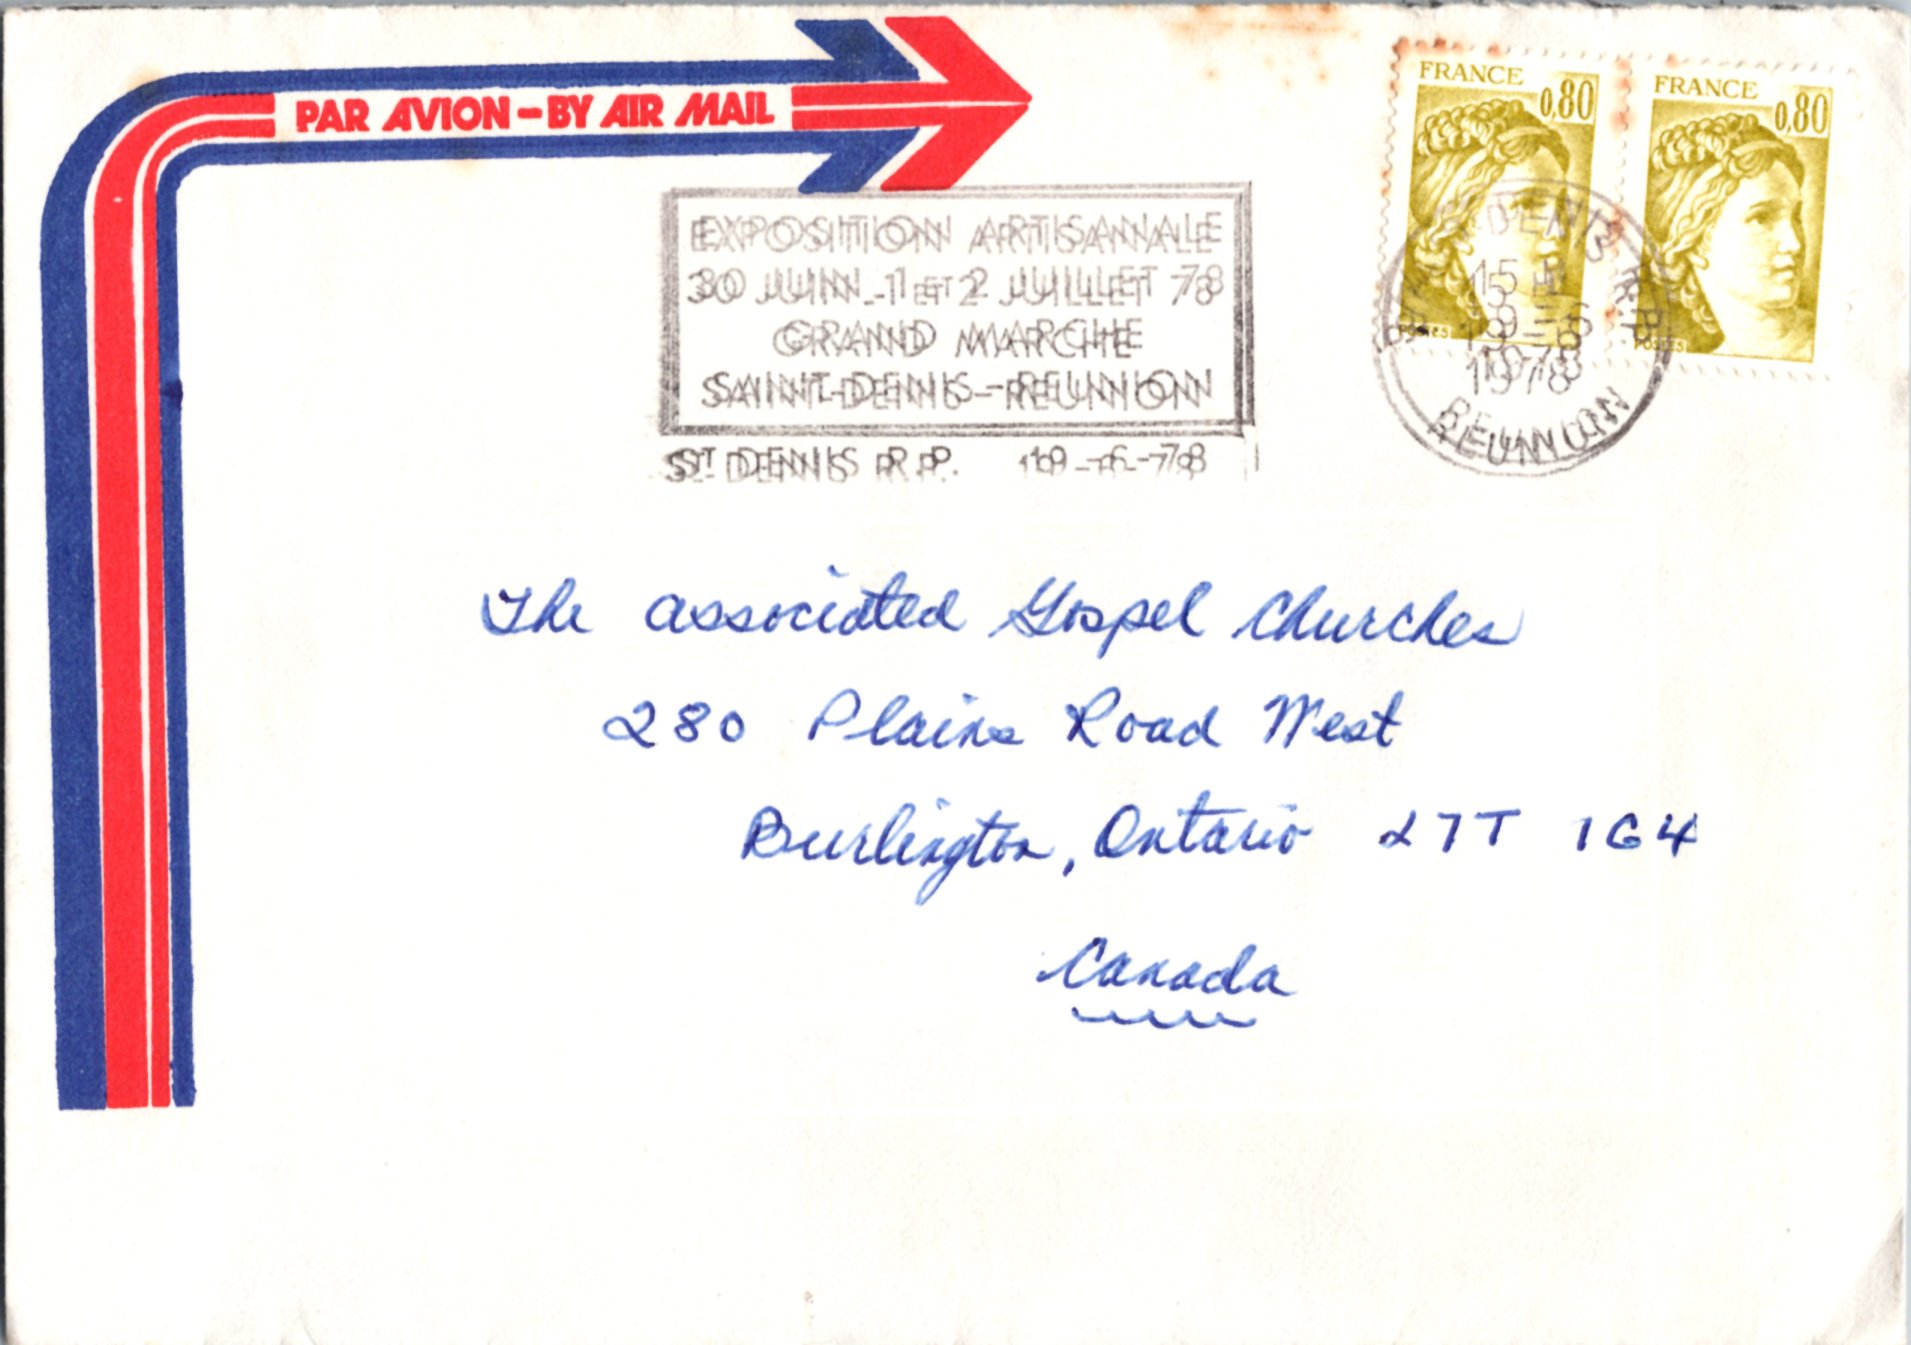 PAR AVION - BY AIR MAIL
FRANCE
0,80
POSTES
FRANCE
0,80
POSTES
EXPOSITION ARTISANALE
30 JUIN - 1 ET 2 JUILLET 78
GRAND MARCHE
SAINT-DENIS - REUNION
ST DENIS R.P. 19-6-78
ST DENIS R.P.
15 H
19 - 6
1978
REUNION
The Associated Gospel Churches
280 Plains Road West
Burlington, Ontario L7T 1G4
Canada